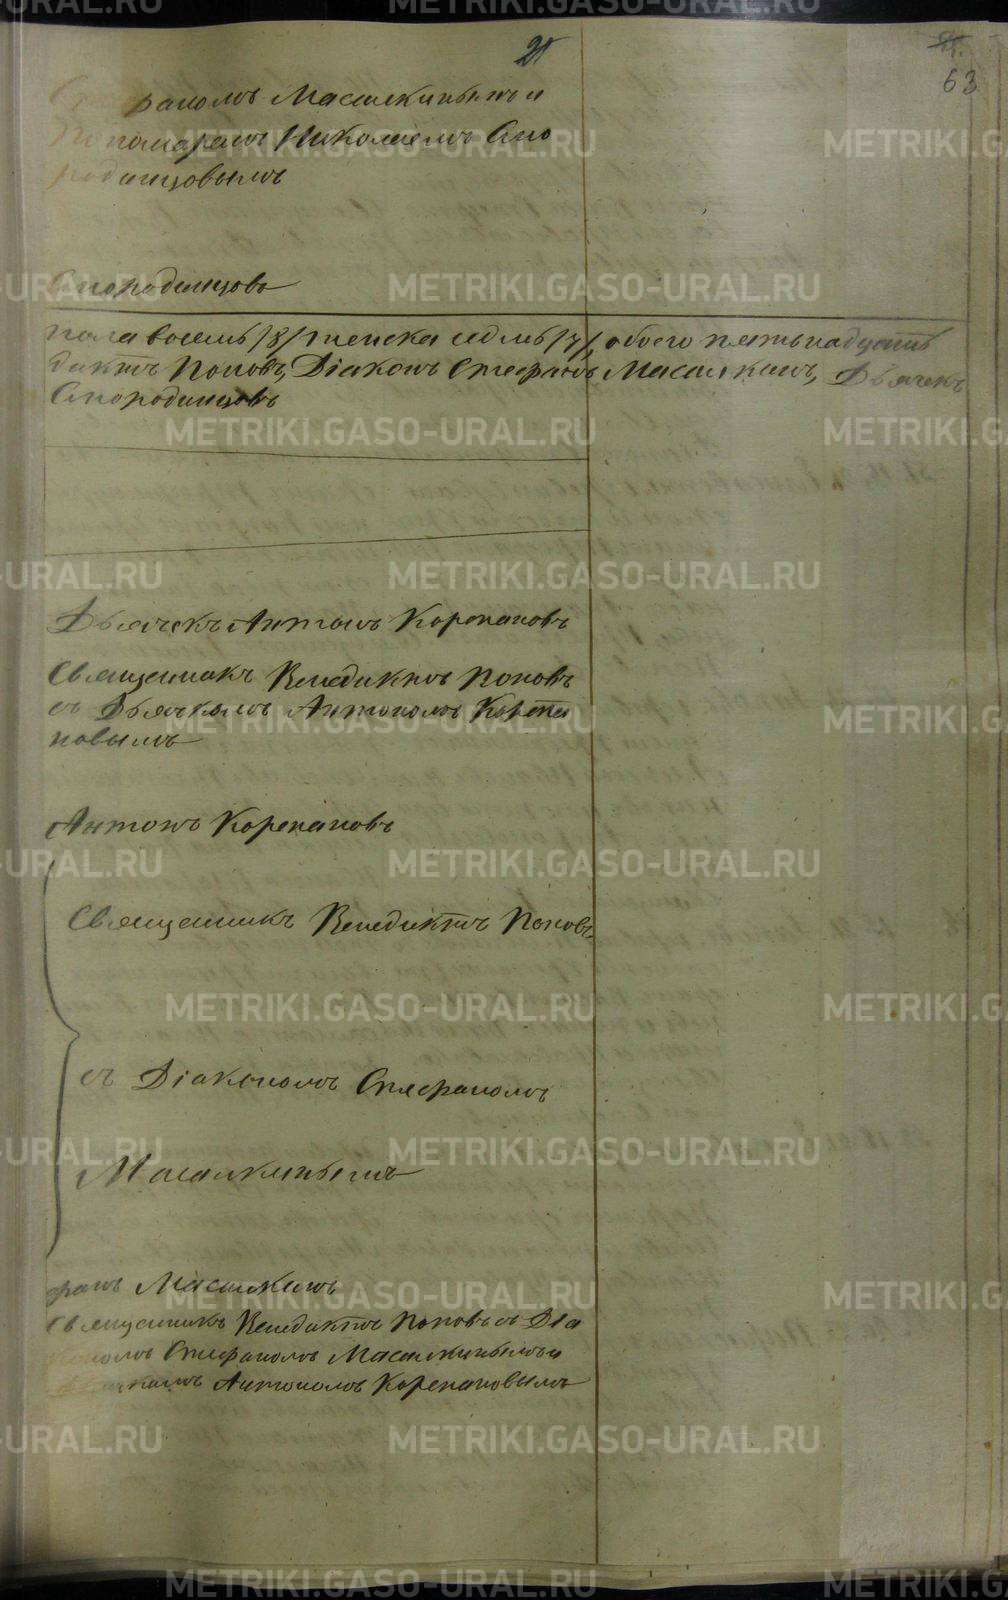 21
63
Стефаномъ Масалкинымъ и
Пономаремъ Николаемъ Смо
родинцовымъ
Смородинцовъ
пола восемь /8/ женска седмь /7/, обоего пятьнадцать
диктъ Поповъ, Діаконъ Стефанъ Масалкинъ, Дьячекъ
Смородинцовъ
Дьячекъ Антонъ Корепановъ
Священникъ Венедиктъ Поповъ
съ Дьячкомъ Антономъ Корепа
новымъ
Антонъ Корепановъ
Священникъ Венедиктъ Поповъ
съ Діакономъ Стефаномъ
Масалкинымъ
фанъ Масалкинъ
Священникъ Венедиктъ Поповъ съ Діа
кономъ Стефаномъ Масалкинымъ и
Дьячкомъ Антономъ Корепановымъ
METRIKI.GASO-URAL.RU